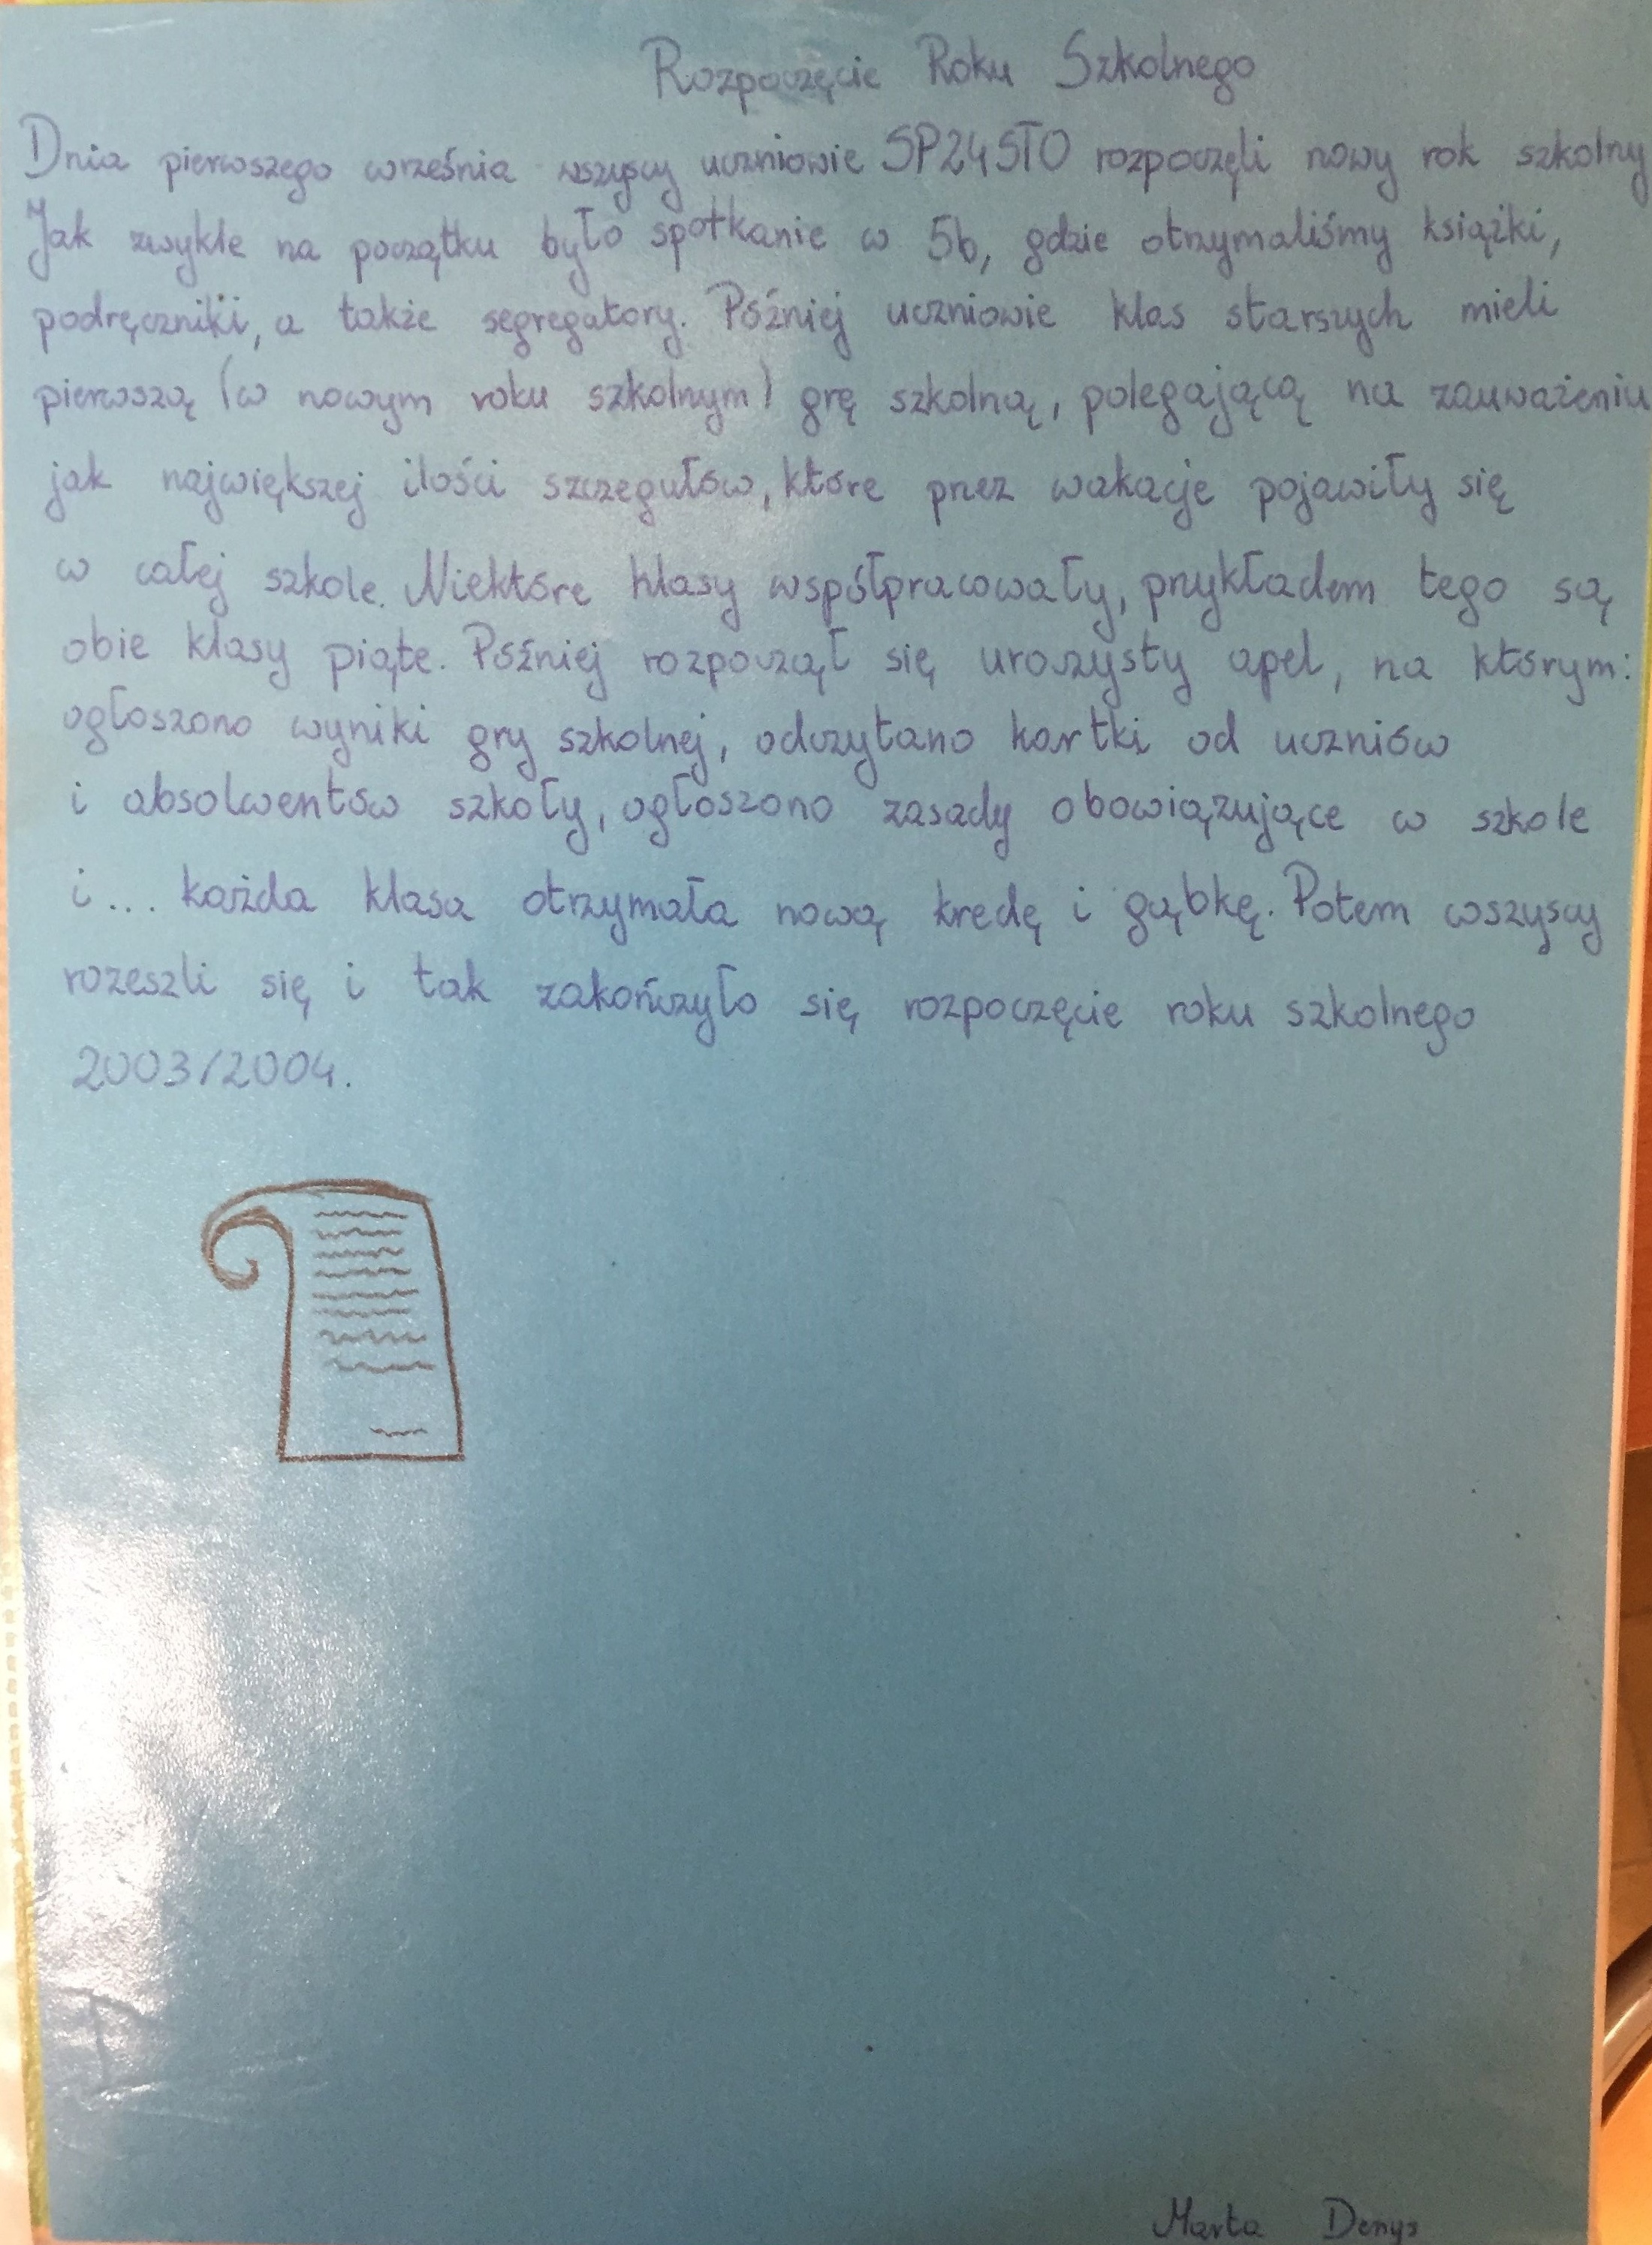 Rozpoczęcie Roku Szkolnego
Dnia pierwszego września wszyscy uczniowie SP24STO rozpoczęli nowy rok szkolny
Jak zwykle na początku było spotkanie w 5b, gdzie otrzymaliśmy książki,
podręczniki, a także segregatory. Później uczniowie klas starszych mieli
pierwszą (w nowym roku szkolnym) grę szkolną, polegającą na zauważeniu
jak największej ilości szczegułów, które przez wakacje pojawiły się
w całej szkole. Niektóre klasy współpracowały, przykładem tego są
obie klasy piąte. Później rozpoczął się uroczysty apel, na którym:
ogłoszono wyniki gry szkolnej, odczytano kartki od uczniów
i absolwentów szkoły, ogłoszono zasady obowiązujące w szkole
i... każda klasa otrzymała nową kredę i gąbkę. Potem wszyscy
rozeszli się i tak zakończyło się rozpoczęcie roku szkolnego
2003/2004.
Marta Denys